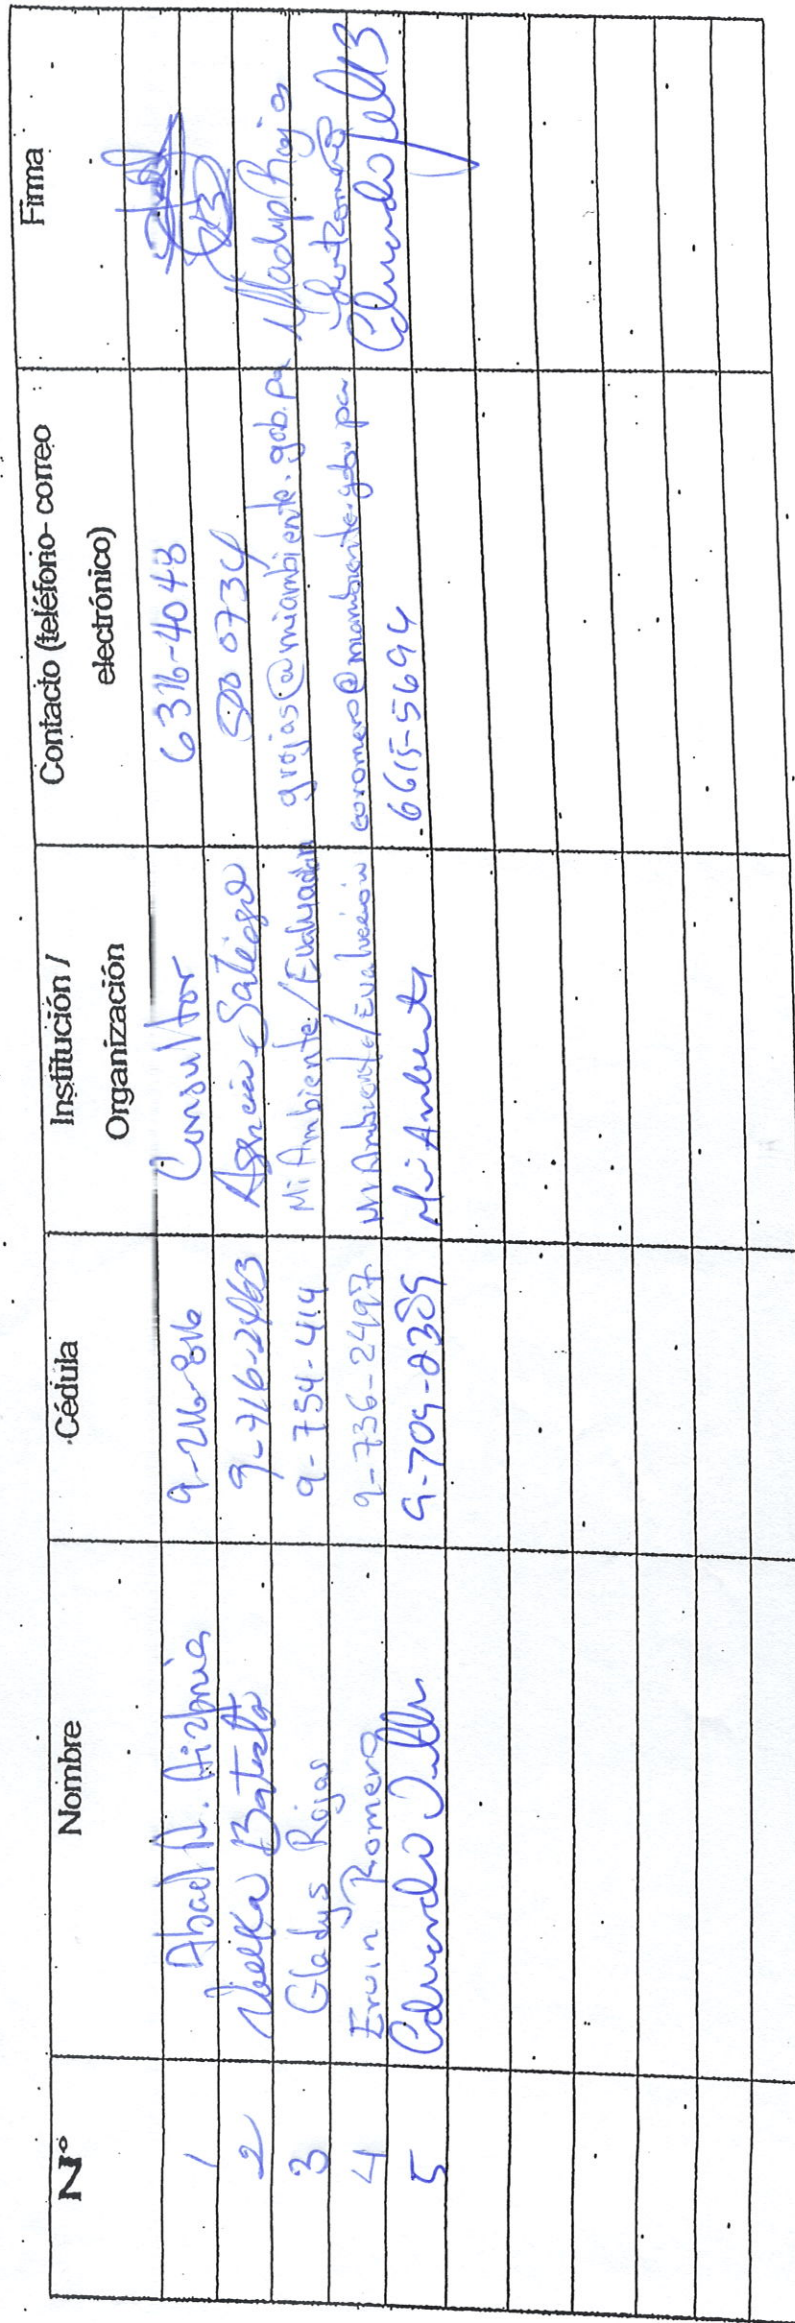 N° Nombre Cédula Institución / Organización Contacto (teléfono- correo electrónico) Firma
1 Abad A. 9-216-816 Consultor 6316-4048
2 Batista 9-716-2463 Agencia 0734
3 Gladys Rojas 9-754-414 Mi Ambiente/Evaluación grojas@miambiente.gob.pa Gladys Rojas
4 Ervin Romero 9-736-2497 Mi Ambiente/Evaluación eoromero@miambiente.gob.pa
5 Eduardo 9-709-2389 Mi Ambiente 6615-5694 Eduardo